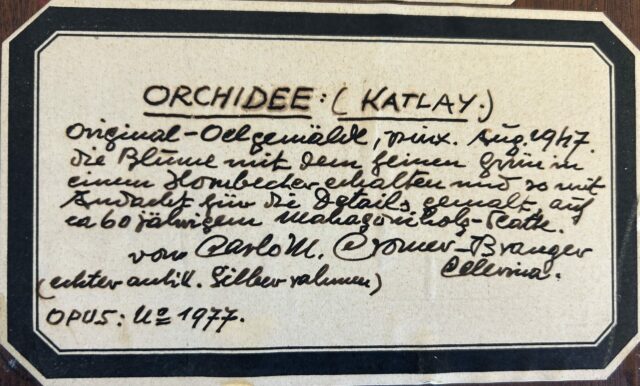 ORCHIDEE: (KATLAY.)
Original-Oelgemälde, pinx. Aug. 1947.
die Blume mit dem feinen grün in
einem Hornbecher erhalten und so mit
Andacht für die Details gemalt, auf
ca 60 jährigem Mahagoniholz-
von Carlo M. Cromer-Branger
Celerina.
(echter antik. Silberrahmen)
OPUS: No 1977.